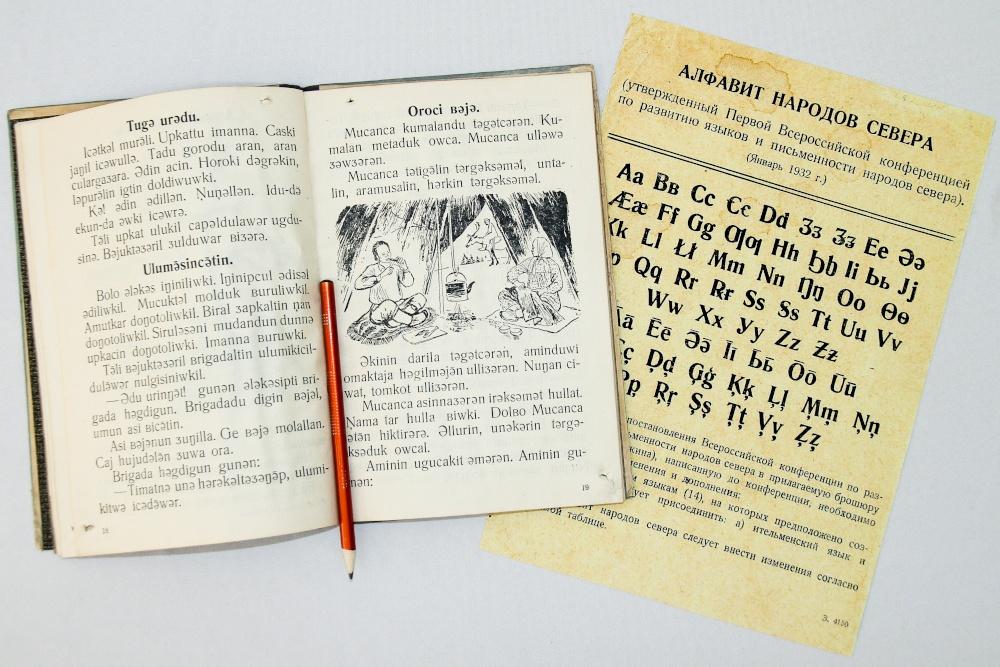 Tugə urədu.
Icətkəl murəli. Upkattu imanna. Caski
jaŋil icəwullə. Tadu gorodu aran, aran
culargaʒara. Ədin acin. Horoki dəgrəkin,
ləpurəlin igtin doldiwuwki.
Kə! ədin ədillən. Ŋuŋəllən. Idu-də
ekun-da əwki icəwrə.
Təli upkat ulukil capəldulawər ugdu-
sinə. Bəjuktəʒəril ʒulduwar ʙiʒərə.
Uluməsincətin.
Bolo ələkəs iŋiniliwki. Iŋinipcul ədisəl
ədiliwkil. Mucuktəl molduk ʙuruliwkil.
Amutkar doŋotoliwkil. Biral zapkaltin ŋan
doŋotoliwkil. Siruləsəni mudandun dunnə
upkacin doŋotoliwki. Imanna ʙuruwki.
Təli ʙəjuktəʒəril ʙrigadaltin ulumikicil-
duləwər nulgisiniwkil.
—Ədu uriŋət! gunən ələkəsipti ʙri-
gada həgdigun. Brigadadu digin ʙəjəl,
umun asi ʙicətin.
Asi ʙəjənun ʒuŋilla. Ge ʙəjə molallan.
Caj hujudələn ʒuwa ora.
Brigada həgdigun gunən:
—Timatnə unə hərəkəltəʒəŋəp, ulumi-
kitwə icədəwər.
18
Oroci ʙəjə.
Mucanca kumalandu təgətcərən. Ku-
malan metaduk owca. Mucanca ulləwə
ʒəwʒərən.
Mucanca lətigəlin tərgəksəməl, unta-
lin, aramusalin, hərkin tərgəksəməl.
Əkinin darila təgətcərən, aminduwi
omaktaja həgilməjən ulliʒərən. Nuŋan ci-
wat, tomkot ulliʒərən.
Mucanca asinnaʒərən irəksəmət hullat.
Ŋama tar hulla ʙiwki. Dolʙo Mucanca
ətən hiktirərə. Əllurin, unəkərin tərgə-
ksəduk owcal.
Aminin ugucakit əmərən. Aminin gu-
nən:
19
АЛФАВИТ НАРОДОВ СЕВЕРА
(утвержденный Первой Всероссийской конференцией
по развитию языков и письменности народов севера).
(Январь 1932 г.)
Aa Bʙ Cc Єє Dd Ʒʒ Ʒ̵ʒ̵ Ee Əə
Ææ Ff Gg Ƣƣ Hh Ꜧꜧ Ii Ьь Jj
Kk Ll Łł Mm Nn Ŋŋ Oo Өө
Qq Rr Rr Ss Ss Tt Uu Vv
Ww Xx Уy Zz Ƶƶ
Āā Ēē Ə̄ə̄ Īī Ь̄ь̄ Ōō Ūū
Çç D̦d̦ Ģģ Ķķ Ļļ M̦m̦ Ņņ
P̦p̦ Ŗŗ Şş Ţţ V̦v̦ Z̦z̦
постановления Всероссийской конференции по раз-
народов севера в прилагаемую брошюру
написанную до конференции, необходимо
и дополнения:
языкам (14), на которых предположено соз-
присоединить: а) ительменский язык и
народов севера следует внести изменения согласно
таблице.
З. 4150